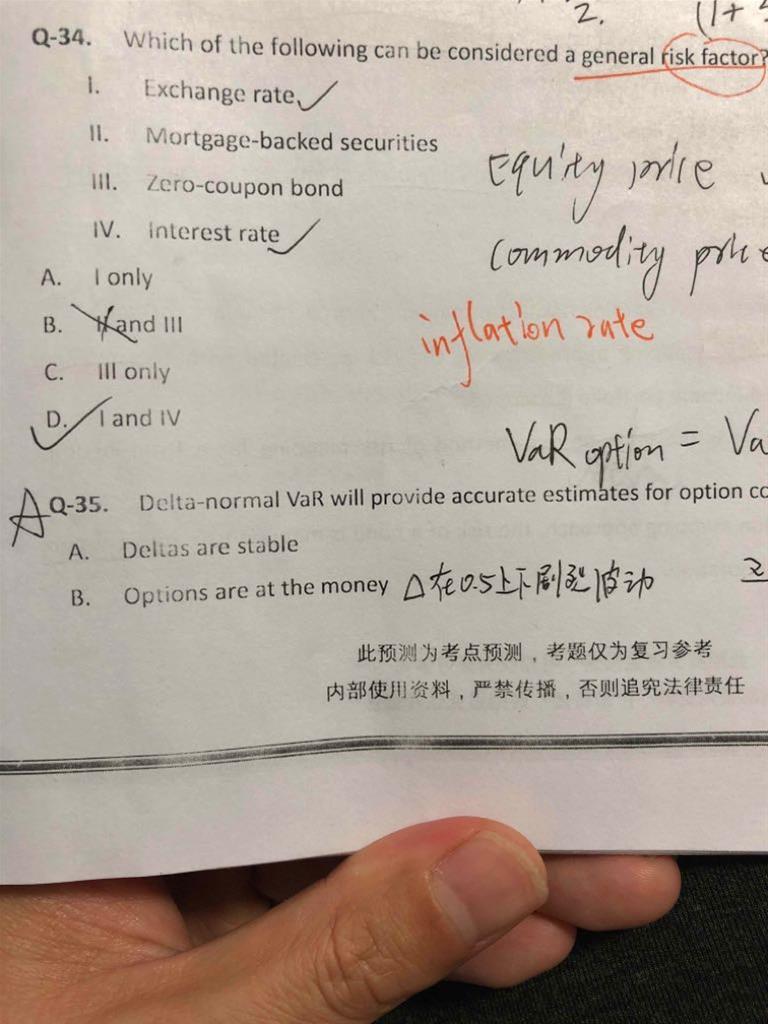 2. (1+
Q-34. Which of the following can be considered a general risk factor?
I. Exchange rate
II. Mortgage-backed securities
III. Zero-coupon bond
IV. Interest rate
Equity price
Commodity price
inflation rate
A. I only
B. II and III
C. III only
D. I and IV
VaR option = Va
A Q-35. Delta-normal VaR will provide accurate estimates for option co
A. Deltas are stable
B. Options are at the money Δ在0.5上下剧烈波动
此预测为考点预测，考题仅为复习参考
内部使用资料，严禁传播，否则追究法律责任